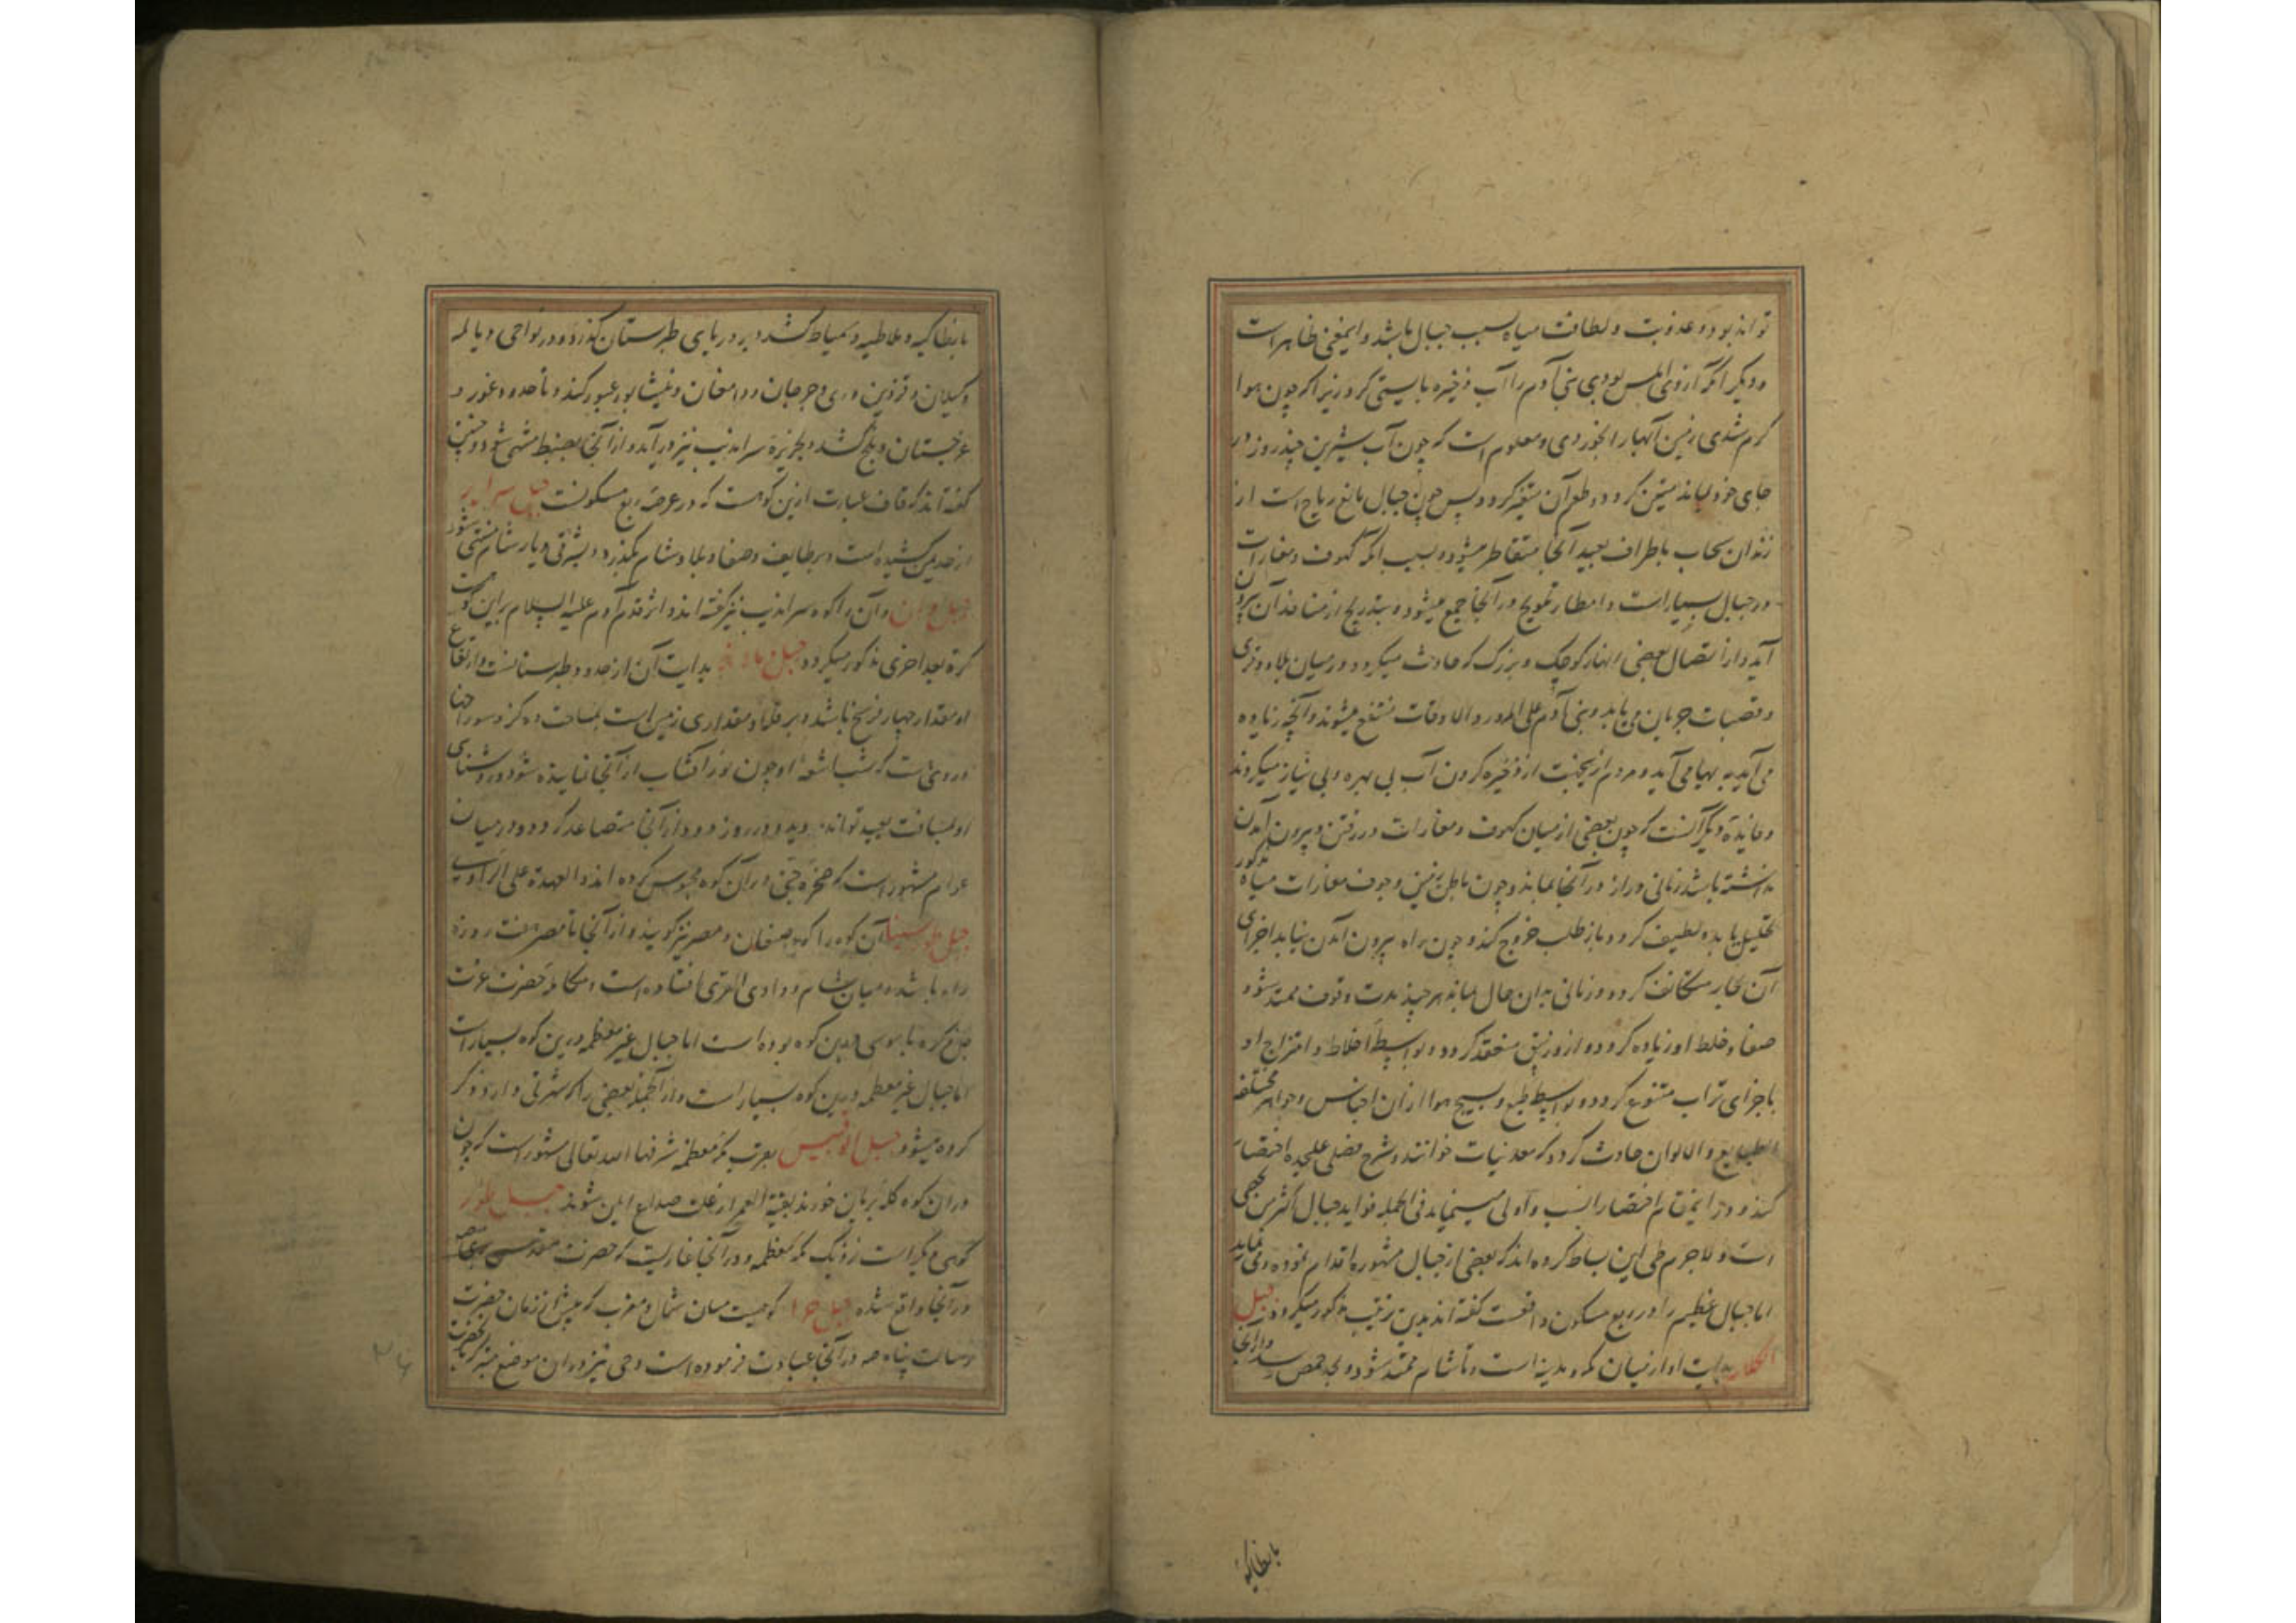 تواند بود و عذوبت و لطافت میاه سبب جبال باشد و اینمعنی ظاهر است
و دیگر آنکه اگر روی املس بودی بنی آدم را آب ذخیره بایستی کرد زیرا که چون هوا
گرم شدی زمین آبها را بخوردی و معلوم است که چون آب شیرین چند روز در
جای خود بماند متعفن گردد و طعم آن متغیر گردد پس چون جبال مانع ریاح است از
راندن سحاب باطراف بعید آنجا متقاطر میشود و بسبب آنکه کهوف و مغارات
در جبال بسیار است و امطار و ثلوج در آنجا جمع میشود و بتدریج از منافذ آن بیرون
آید و از اتصال بعضی انهار کوچک و بزرگ که حادث میگردد در میان بلاد و قری
و قصبات جریان می یابد و بنی آدم علی المرور و الاوقات منتفع میشوند و آنچه زیاده
می آید به میآید و مردم ازینجهت از ذخیره کردن آب بی بهره و بی نیاز میگردند
و فایده دیگر آنست که چون بعضی از میان کهوف و مغارات در رفتن و بیرون آمدن
نداشته باشد زمانی دراز در آنجا بماند و چون باطن زمین و جوف مغارات میاه مذکور
تحلیل یابد و لطیف گردد باز طلب خروج کند و چون راه بیرون آمدن نیابد اجزای
آن بخار متکاثف گردد و زمانی بدان حال بماند هر چند مدت وقوف ممتد شود
صفا و غلظ او زیاده گردد و ازو زیبق منعقد گردد و بواسطه اختلاط و امتزاج او
باجزای تراب متنوع گردد و بواسطه طبع و هوا از آن اجناس و جواهر مختلفه
الطبایع و الالوان حادث گردد که معدنیات خوانند و شرح فصلی علیحده اقتضا
کند و درین مقام اختصار انسب و اولی مینماید فی الجمله فواید جبال اکثر من یحصی
است و لاجرم طی این بساط کرده اند که بعضی از جبال مشهوره اقدام نموده می نماید
اما جبال عظیم را در ربع مسکون واقعست گفته اند بدین ترتیب مذکور میگردد جبل
بدایت او از میان مکه و مدینه است و تا شام ممتد شود و بحد حمص رسد و از آنجا
بانطاکیه
بانطاکیه و ملاطیه و سمیاط کشد و بر دریای طبرستان گذرد و در نواحی دیالمه
و گیلان و قزوین و ری و جرجان و دامغان و نیشابور عبور کند و تا حدود غور و
غرجستان و بلخ کشد و بجزیره سراندیب نیز درآید و از آنجا منتهی شود و چنین
گفته اند که قاف عبارت ازین کوهست که در عرصه ربع مسکونست جبل
از حد یمن کشیده است و بر طایف و صنعا و بلاد شام بگذرد و بشرقی دیار شام منتهی شود
و آن را کوه سراندیب نیز گفته اند و اثر قدم آدم علیه السلام براین کوهست
کرة بعد اخری مذکور میگردد جبل بدایت آن از حدود طبرستانست و ارتفاع
او مقدار چهار فرسخ باشد و بر قله او مقداری زمین است بمساحت ده گز و سوراخها
دروی است که شبها شعله او چون نور آفتاب از آنجا تابنده شود و روشنای
او بمسافت بعید توانند دید و در روز دود از آنجا متصاعد گردد و در میان
عوام مشهور است که صخره جنی در آن کوه محبوس کرده اند و العهدة علی الراوی
جبل طور سینا آن کوه را کوه و مصر نیز گویند و از آنجا تا مصر هفت روزه
راه باشد و میان شام و وادی القری افتاده است و مکالمه حضرت عزت
جل ذکره با موسی درین کوه بوده است اما جبال غیر معظمه درین کوه بسیار است
اما جبال غیر معظمه درین کوه بسیار است و از آنجمله بعضی را که شهرتی دارد ذکر
کرده میشود جبل ابوقبیس بقرب مکه معظمه شرفها الله تعالی مشهور است که چون
در آن کوه کله بریان خورند بقیة العمر از علت صداع ایمن شوند جبل ثور
کوهی دیگر است نزدیک مکه معظمه و در آنجا غاریست که حضرت مقدس
در آنجا واقع شده جبل حرا کوهیست میان شمال و مغرب که پیش از زمان حضرت
رسالت پناه صه در آنجا عبادت فرموده است و وحی نیز در آن موضع متبرک